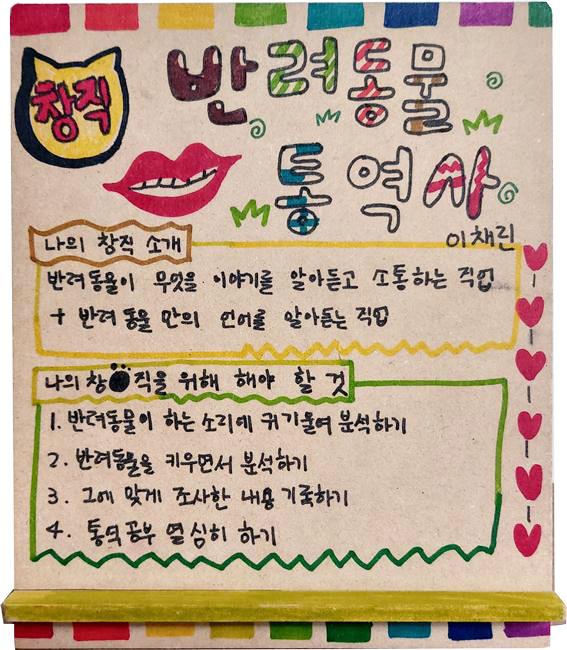 창직
반려동물
통역사
이채린
나의 창직 소개
반려동물이 무엇을 이야기를 알아듣고 소통하는 직업
+ 반려동물 만의 언어를 알아듣는 직업
나의 창직을 위해 해야 할 것
1. 반려동물이 하는 소리에 귀 기울여 분석하기
2. 반려동물을 키우면서 분석하기
3. 그에 맞게 조사한 내용 기록하기
4. 통역공부 열심히 하기